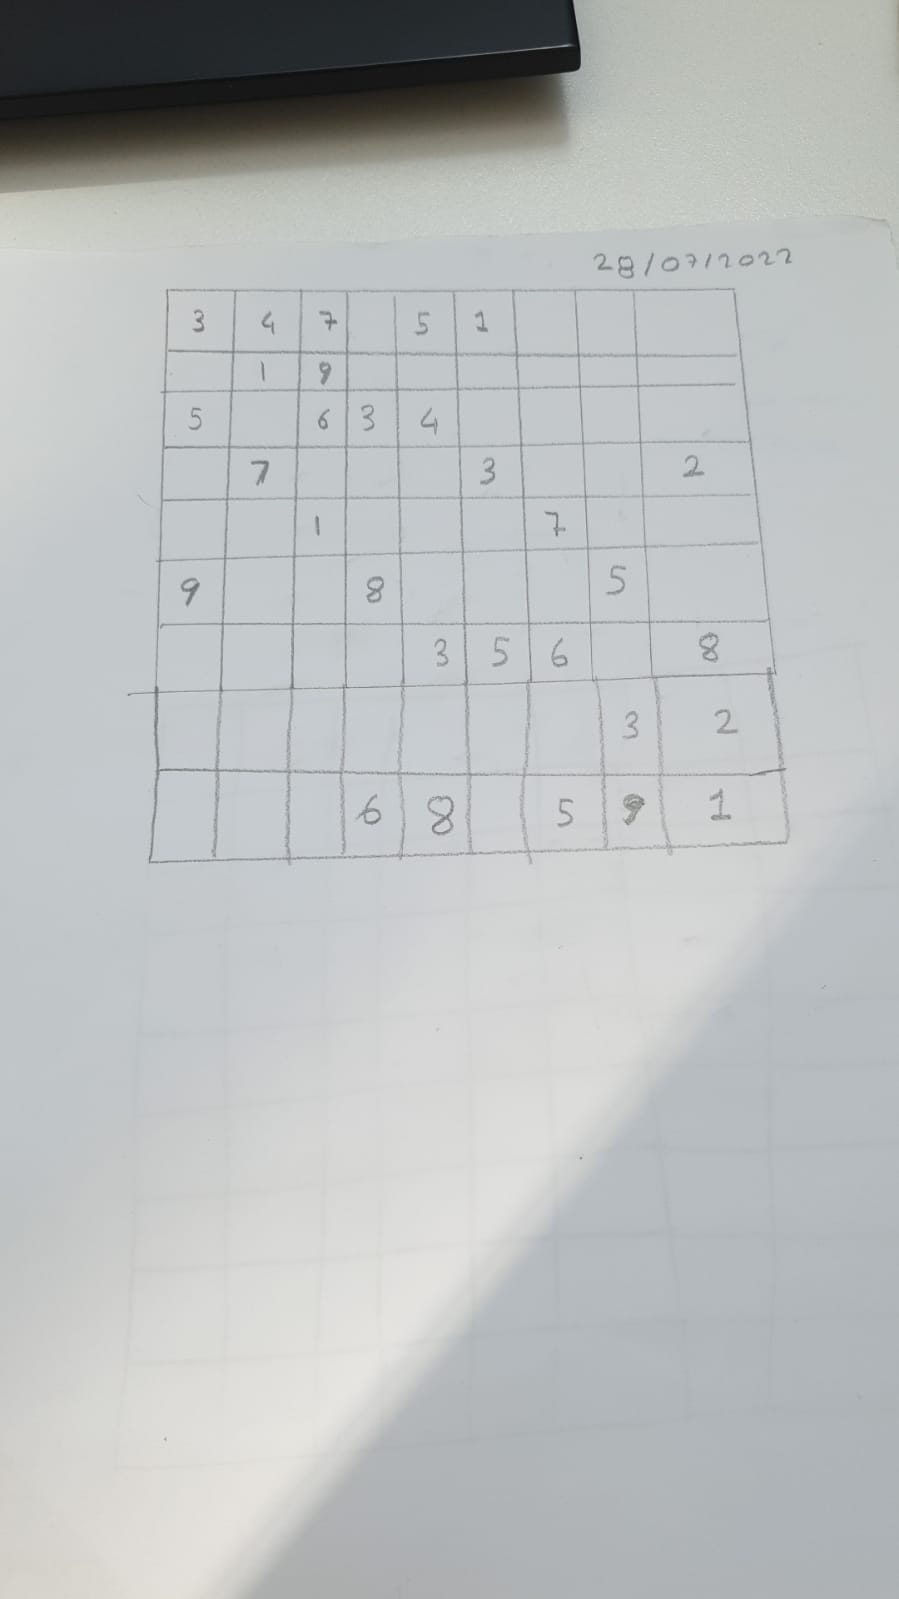 28/07/2022
3 4 7 5 1
1 9
5 6 3 4
7 3 2
1 7
9 8 5
3 5 6 8
3 2
6 8 5 9 1